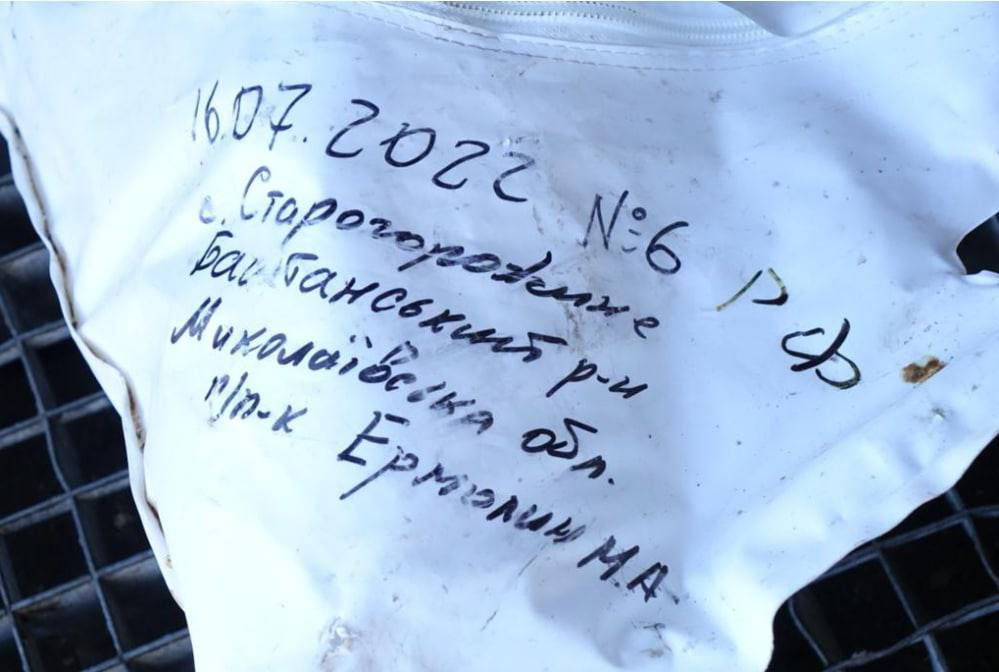 16.07.2022 №6 РФ
с. Старогорожене
Баштанський р-н
Миколаївська обл.
п/п-к Ермолин М.А.